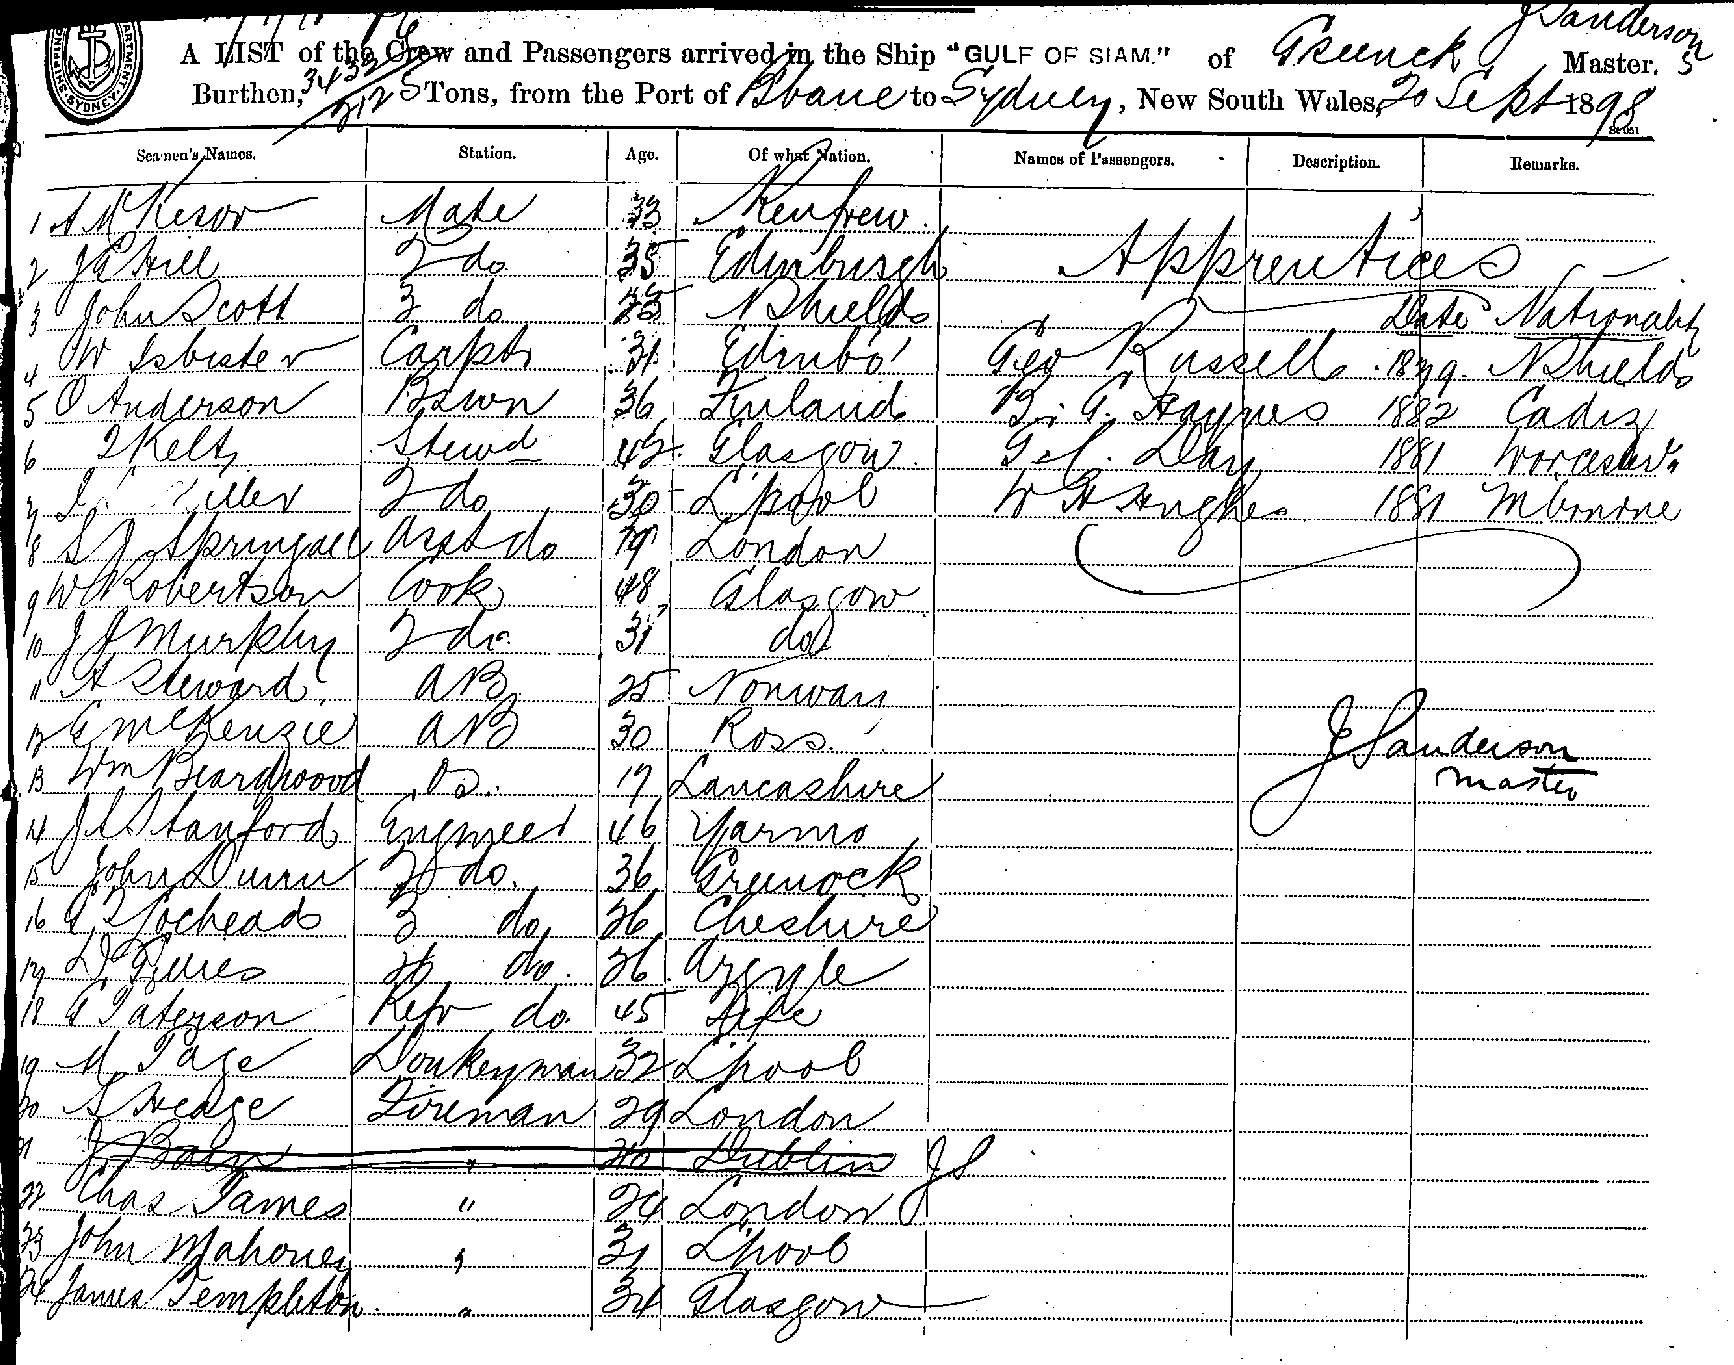 J Sanderson
A LIST of the Crew and Passengers arrived in the Ship "GULF OF SIAM." of Greenock Master.
Burthen, Tons, from the Port of Bbane to Sydney, New South Wales, 20 Sept 1898
Seamen's Names. Station. Age. Of what Nation. Names of Passengers. Description. Remarks.
1 Mate 33 Renfrew
2 Hill 2 do 35 Edinburgh Apprentices
3 John Scott 3 do 25 N Shields Date Nationality
4 W Isbister Carptr 31 Edinbo' Geo Russell 1879 N Shields
5 O Anderson Bswn 36 Finland Haynes 1882 Cadiz
6 Stewd 42 Glasgow Day 1881 Worcester
7 2 do L'pool W H Hughes 1881 Mbourne
8 Springall Asst do 19 London
9 W Robertson Cook 48 Glasgow
10 J J Murphy 2 do 31 do
11 A Steward AB 25 Norway
12 McKenzie AB 30 Ross
13 Wm Beardwood Os. 17 Lancashire
J Sanderson
master
14 Stanford Engineer 46 Yarmo
15 John Dunn 2 do. 36 Greenock
16 Locheads 3 do 26 Cheshire
17 4 do. 26 Argyle
18 Paterson Refr do 45 Fife
19 M Page Donkeyman 32 L'pool
20 Hedge Fireman 29 London
21 J " 26 Dublin JS
22 Chas James " 24 London
23 John Mahoney " 31 L'pool
24 James Templeton " 34 Glasgow